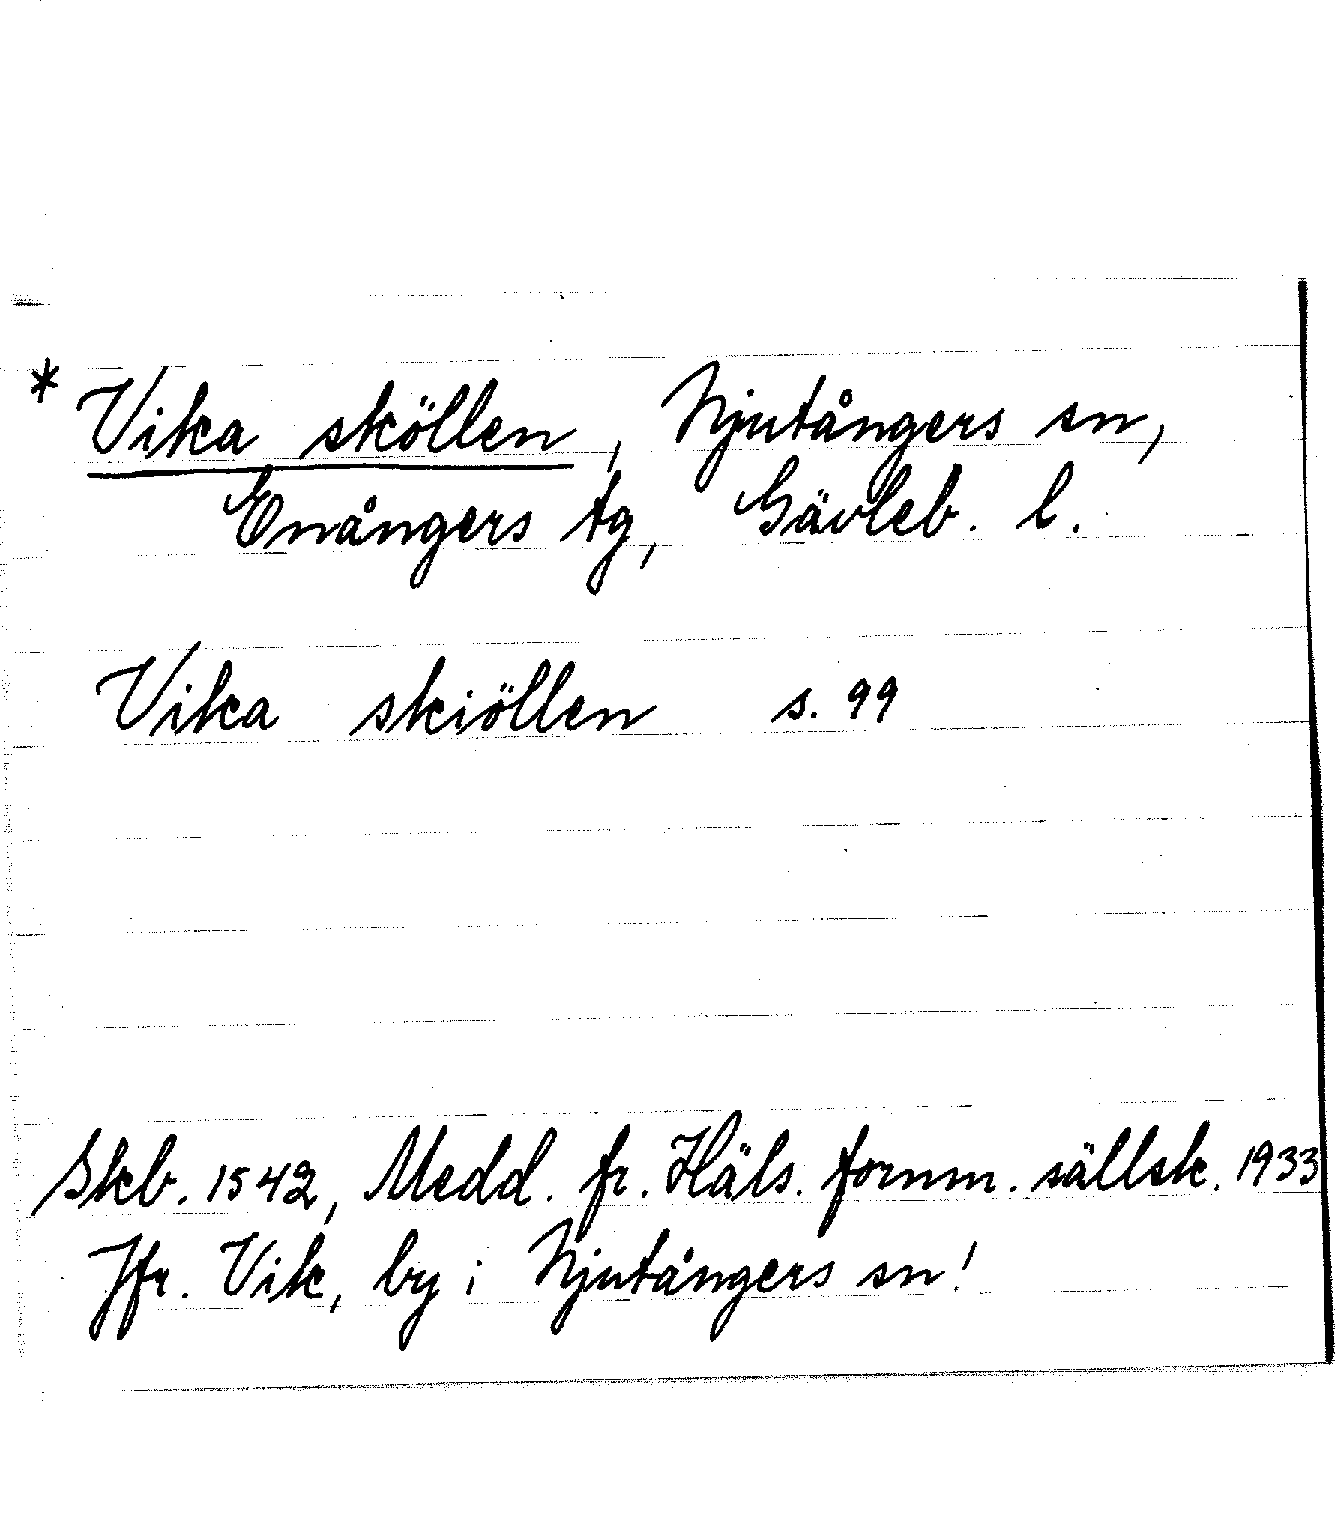 * Vika sköllen, Njutångers sn,
Enångers tg, Gävleb. l.
Vika skiöllen s. 99
Skb. 1542, Medd. fr. Häls. fornm. sällsk. 1933
Jfr. Vik, by i Njutångers sn!